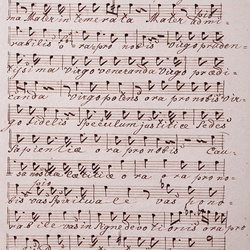 ma Mater intemerata Mater admi-
rabilis ora pro nobis Virgo pruden-
tissima Virgo veneranda Virgo prædi-
canda Virgo potens ora pro nobis Vir
go fidelis Speculum justitiæ Sedes
Sapientiæ ora pro nobis Cau-
sa nostræ lætitiæ ora ora pro no-
bis vas spirituale vas hono-
rabile vas insigne devotionis ora pro